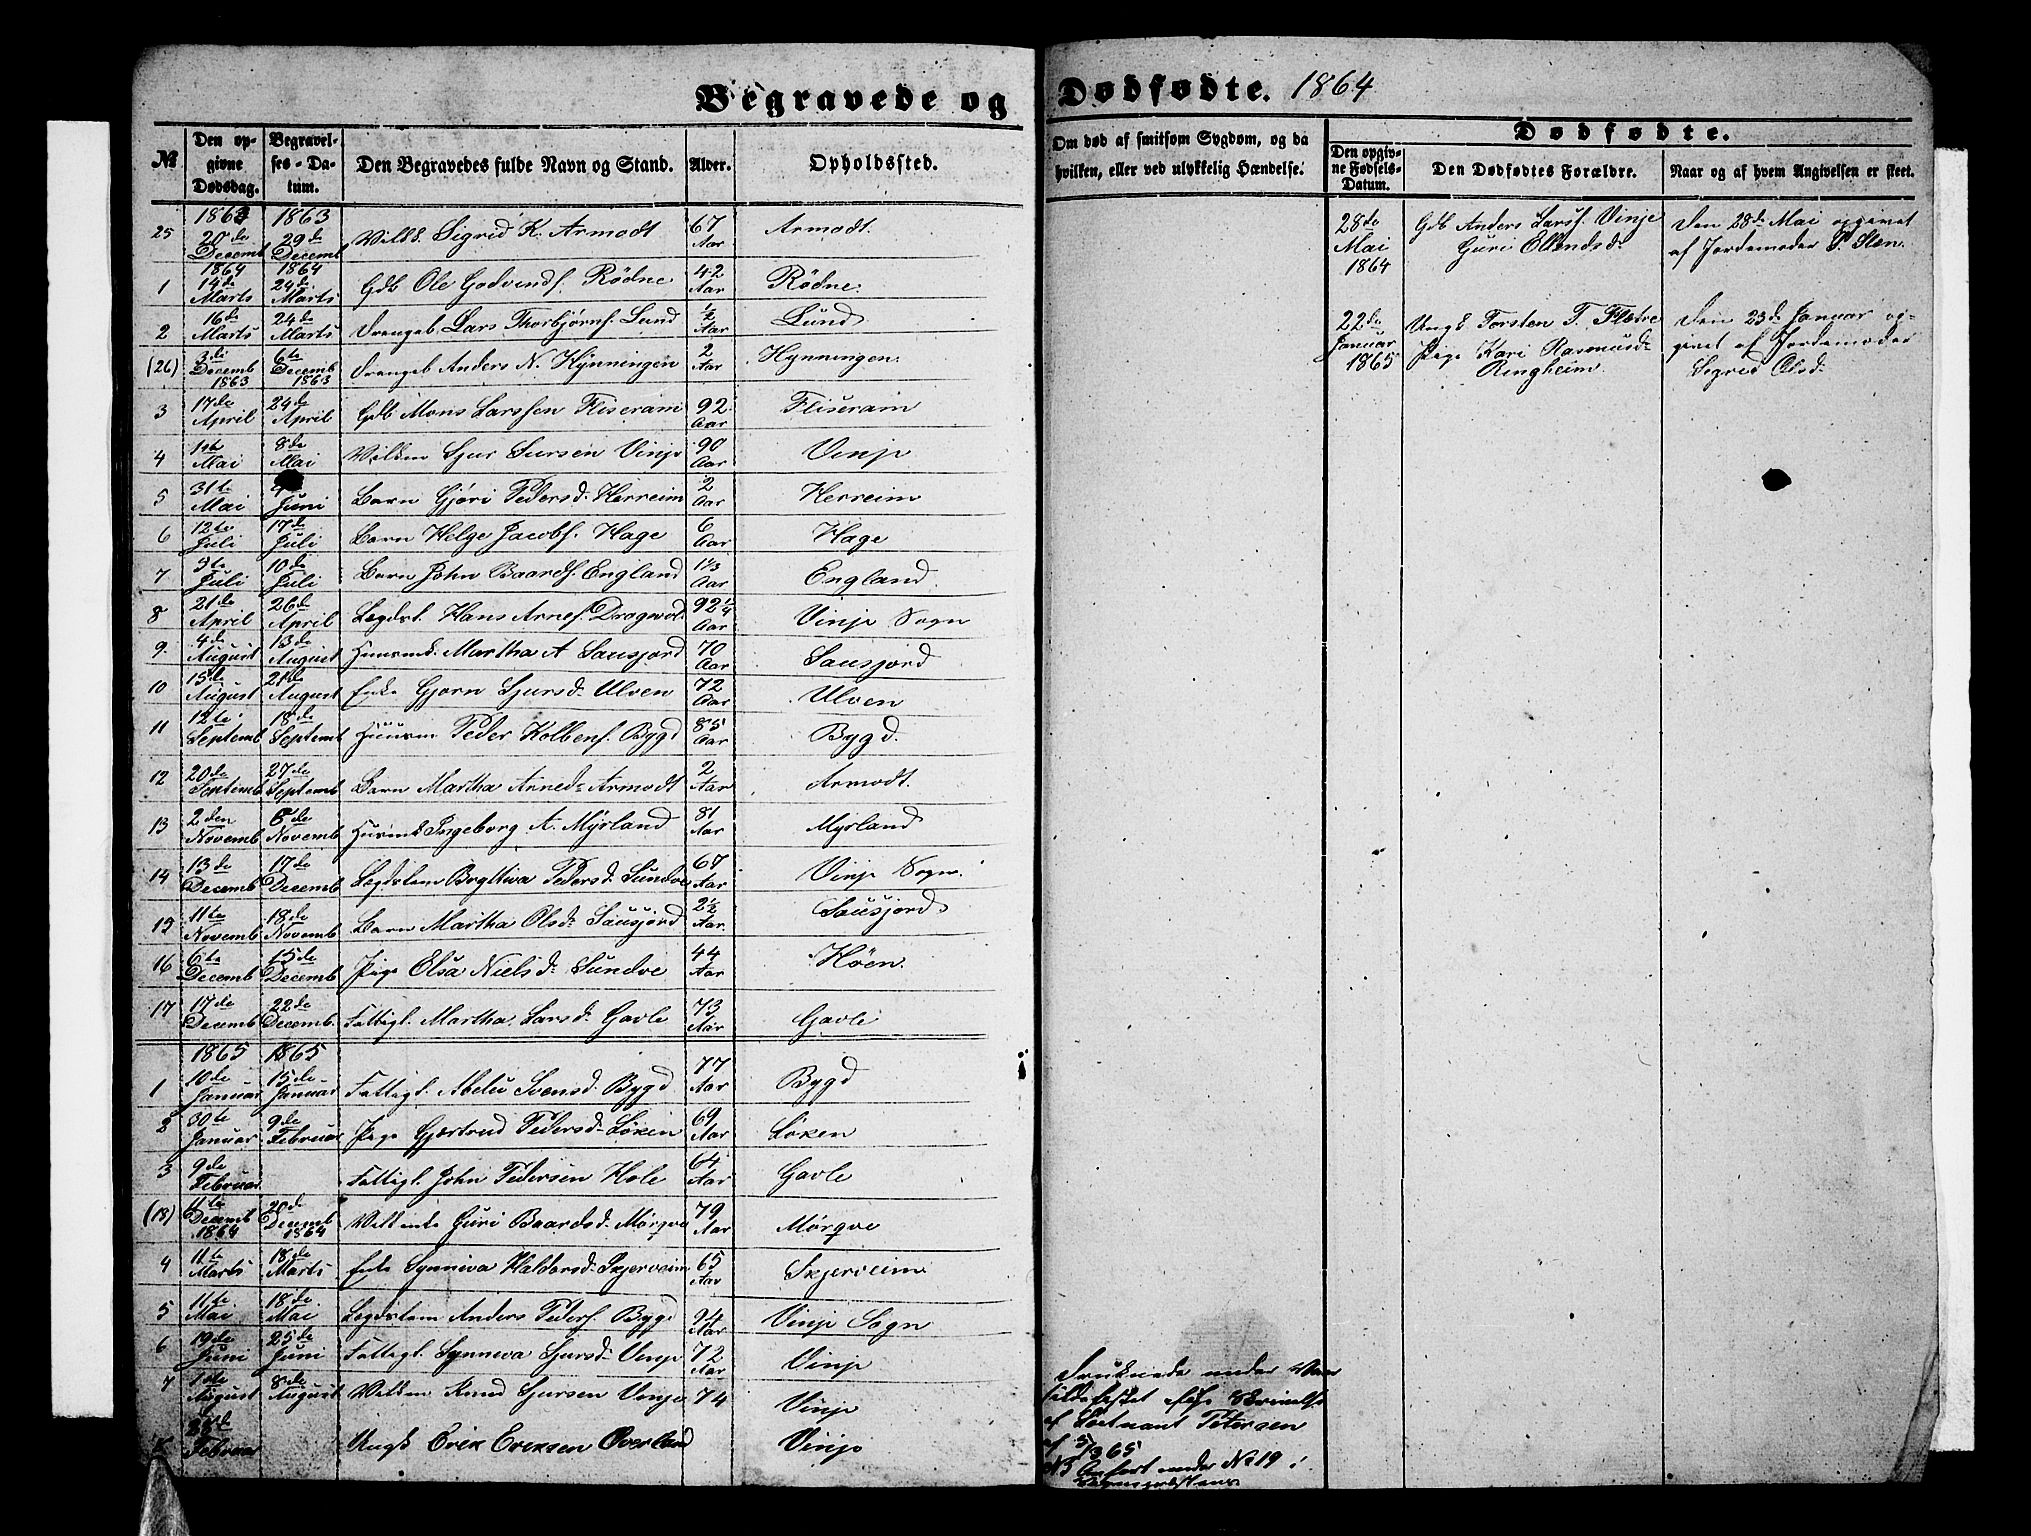 Begravede og Dødfødte. 1864
№ Den opgivne Dødsdag. Begravelses-Datum. Den Begravedes fulde Navn og Stand. Alder. Opholdssted. Om død af smitsom Sygdom, og da hvilken, eller ved ulykkelig Hændelse.
Dødfødte.
Den opgivne Fødsels-Datum. Den Dødfødtes Forældre. Naar og af hvem Angivelsen er skeet.
25 1863 20de Decemb 1863 29de Decemb Sigrid K. Armodt 67 Aar Armodt.
1 1864 14de Marts 1864 24de Marts Gdb Ole Godvends. Rödne 42 Aar Rödne.
2 16de Marts 24de Marts Drengeb Lars Thorbjørns. Lund ½ Aar Lund
(26) 3die Decemb 1863 6te Decemb 1863 Drengeb Anders N. Hÿnningen 2 Aar Hynningen.
3 17de April 24de April Gdb Mons Larssen Fliseram 92 Aar Fliseram
4 1ste Mai 8de Mai Sjur Sursen Vinje 90 Aar Vinje
5 31te Mai Juni Barn Gjøri Pedersd. Herreim 2 Aar Herreim
6 12te Juli 17de Juli Barn Helge Jacobs. Hage 6 Aar Hage
7 3te Juli 10de Juli Barn John Baards. England 1⅓ Aar England.
8 21de April 26de April Lægdsl. Hans Arnes. Dragevol. 92¼ Aar Vinje Sogn
9. 4de August 13de August Huusmd. Martha A Sausjord 70 Aar Sausjord
10 15de August 21de August Enke Gjørn Sjursd. Ulven 72 Aar Ulven
11 12te Septemb 18de Septemb Huusm Peder Kolbens. Bygd 85 Aar Bygd.
12 20de Septemb 27de Septemb Barn Martha Arned. Armodt 2 Aar Armodt.
13 2den Novemb 6de Novemb Ingeborg A. Mÿrland 81 Aar Myrland
14 13de Decemb 17de Decemb Lægdslem Brÿttiva Pedersd. Sundve 67 Aar Vinje Sogn.
15 11te Novemb 18de Novemb Barn Martha Olsd. Sausjord 2½ Aar. Sausjord
16 6te Decemb 15de Decemb Pige Olsa Nielsd. Sundve 44 Aar Høen.
17 17de Decemb 22de Decemb. Fattigl. Martha Larsd. Gavle 73 Aar Gavle
1 1865 10de Januar 1865 15de Januar Fattigl. Abelu Svensd. Bygd 77 Aar Bygd
2 30te Januar 9de Februar Pige Gjertrud Pedersd. Løken 69 Aar Løken
3 9de Februar Fattigl. John Pedersen Hole 64 Aar Gavle
(18) 11te Decemb 1864 20de Decemb 1864 Guri Baardsd. Mørqve 79 Aar Mørqve
4 11te Marts 18de Marts Enke Synneva Haldorsd. Skjerveim 65 Aar Skjerveim
5 11te Mai 18de Mai Lægdslem Anders Peders. Bygd 94 Aar Vinje Sogn
6 19de Juni 25de Juni Fattigl. Synneva Sjursd. Vinje 72 Aar Vinje
7 1ste August 8de August Knud Sjursen Vinje 74 Vinje
Februar Ungk Erik Eriksen Øverland Vinje
28de Mai 1864 Gdb Anders Larss. Vinje Guri Ellendsd. Den 28de Mai opgivet af Jordemoder S. Sten.
22de Januar 1865 Ungk Torsten T. Fletre Pige Kari Rasmusd. Ringheim. Den 23de Januar opgivet af Jordemoder Sigrid Olsd.
Druknede under
af Løitnant Petersen
af 5/3 65
NB Anført under No 19